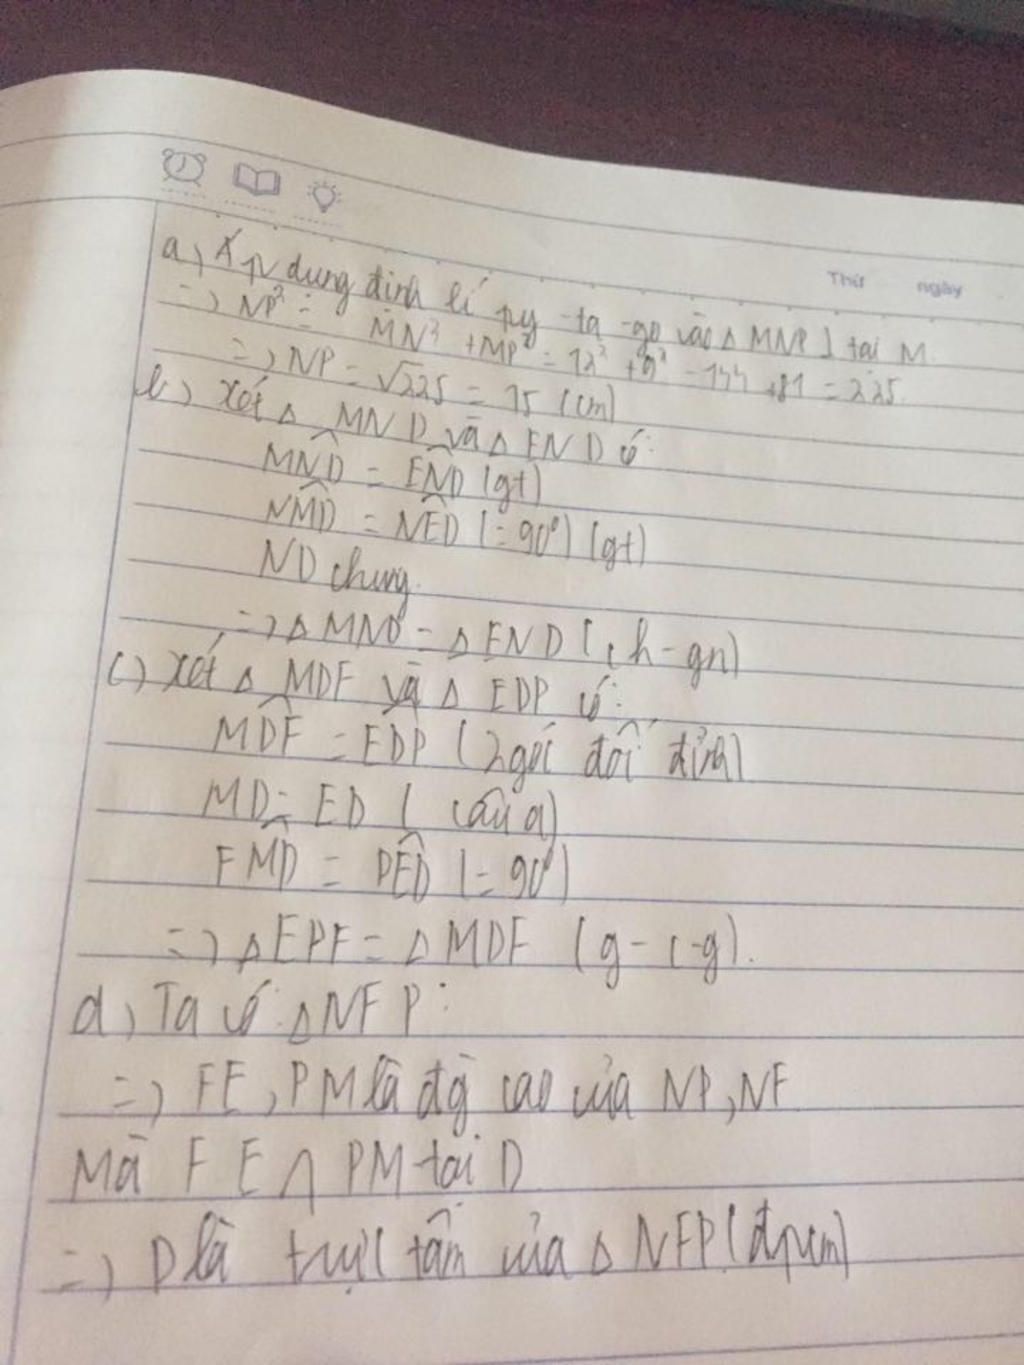 Thứ ngày
a) Áp dung định lí py-ta-go vào Δ MNP ⊥ tại M
=> NP² = MN² + MP² = 12² + 9² = 144 + 81 = 225
=> NP = √225 = 15 (cm)
b) xét Δ MND và Δ END có:
MND̂ = END̂ (gt)
NMD̂ = NED̂ (= 90⁰) (gt)
ND chung.
=> Δ MND = Δ END (ch-gn)
c) xét Δ MDF và Δ EDP có:
MDF̂ = EDP̂ (2 góc đối đỉnh)
MD = ED (câu a)
FMD̂ = PED̂ (= 90⁰)
=> Δ EPF = Δ MDF (g-c-g).
d) Ta có Δ NFP:
=> FE, PM là đg cao của NP, NF
Mà FE ∩ PM tại D
=> D là trực tâm của Δ NFP (đpcm)